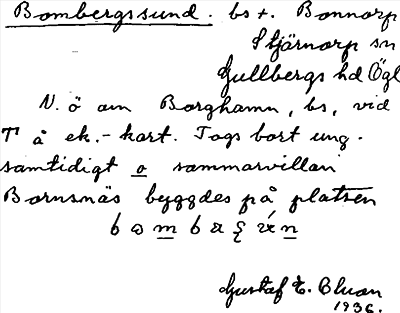 Bombergssund. bs +. Bonnorp
Stjärnorp sn
Gullbergs hd Ögl
N. ö om Borghamn, bs, vid
T å ek.-kart. Togs bort ung.
samtidigt o sommarvillan
Bornsnäs byggdes på platsen
Gustaf E. Cluan
1936.